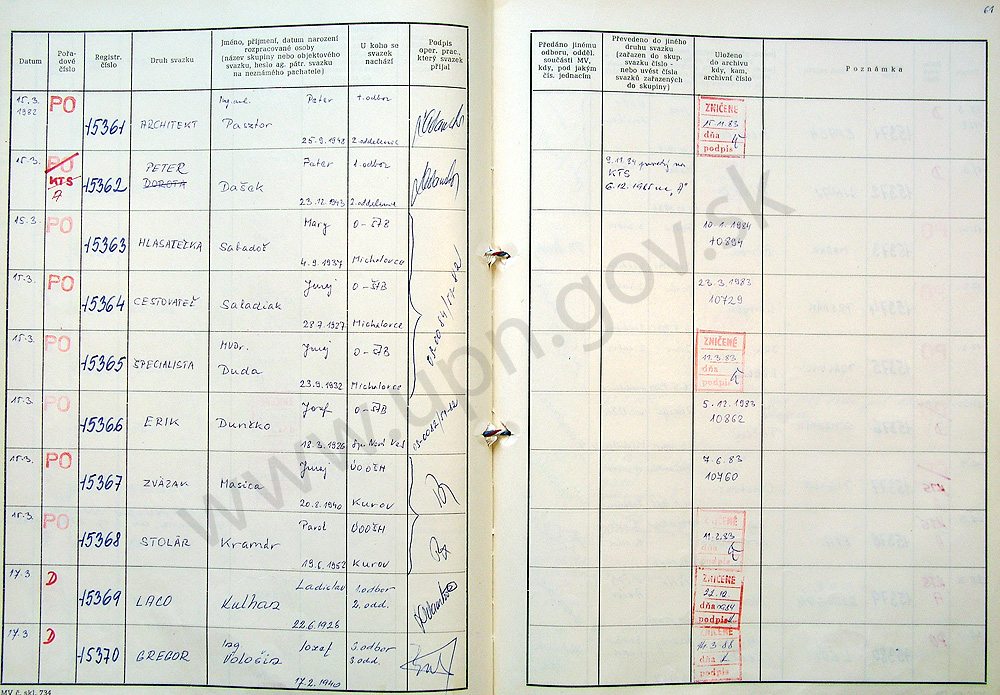 61
Datum
Pořa-
dové
číslo
Registr.
číslo
Druh svazku
Jméno, příjmení, datum narození
rozpracované osoby
(název skupiny nebo objektového
svazku, heslo ag. pátr. svazku
na neznámého pachatele)
U koho se
svazek
nachází
Podpis
oper. prac.,
který svazek
přijal
Předáno jinému
odboru, odděl.
součásti MV,
kdy, pod jakým
čís. jednacím
Převedeno do jiného
druhu svazku
(zařazen do skup.
svazku číslo -
nebo uvést čísla
svazků zařazených
do skupiny)
Uloženo
do archivu
kdy, kam,
archivní číslo
Poznámka
15.3. 1982 PO 15361 ARCHITEKT Peter Pasztor 25.9.1948 1. odbor 2. oddelenie
ZNIČENÉ 15.11.83 dňa podpis
15.3. PO KTS 15362 PETER DOROTA Peter Dašek 23.12.1943 1. odbor 2. oddelenie
9.11.84 KTS
15.3. PO 15363 HLASATEĽKA Mary Sabadoš 4.9.1937 O-ŠTB Michalovce
10.1.1984
10894
15.3. PO 15364 CESTOVATEĽ Juraj Saladiak 28.7.1927 O-ŠTB Michalovce
23.3.1983
10729
15.3. PO 15365 ŠPECIALISTA MVDr. Juraj Duda 23.9.1932 O-ŠTB Michalovce
ZNIČENÉ 11.3.83 dňa podpis
15.3. PO 15366 ERIK Jozef 18.3.1926 O-ŠTB Sp. Nová Ves
5.12.1983
10862
15.3. PO 15367 ZVÄZAK Juraj Masica 20.8.1940 ÚOOŠH Kurov
7.6.83
10760
15.3. PO 15368 STOLÁR Pavol Kramár 19.6.1952 ÚOOŠH Kurov
ZNIČENÉ 11.2.83 dňa podpis
17.3 D 15369 LACO Ladislav Kulhan 22.6.1926 1. odbor 2. odd.
ZNIČENÉ dňa podpis
17.3 D 15370 GREGOR Ing. Jozef Vološin 17.2.1940 odbor odd.
ZNIČENÉ dňa podpis
MV č. skl. 734
www.upn.gov.sk